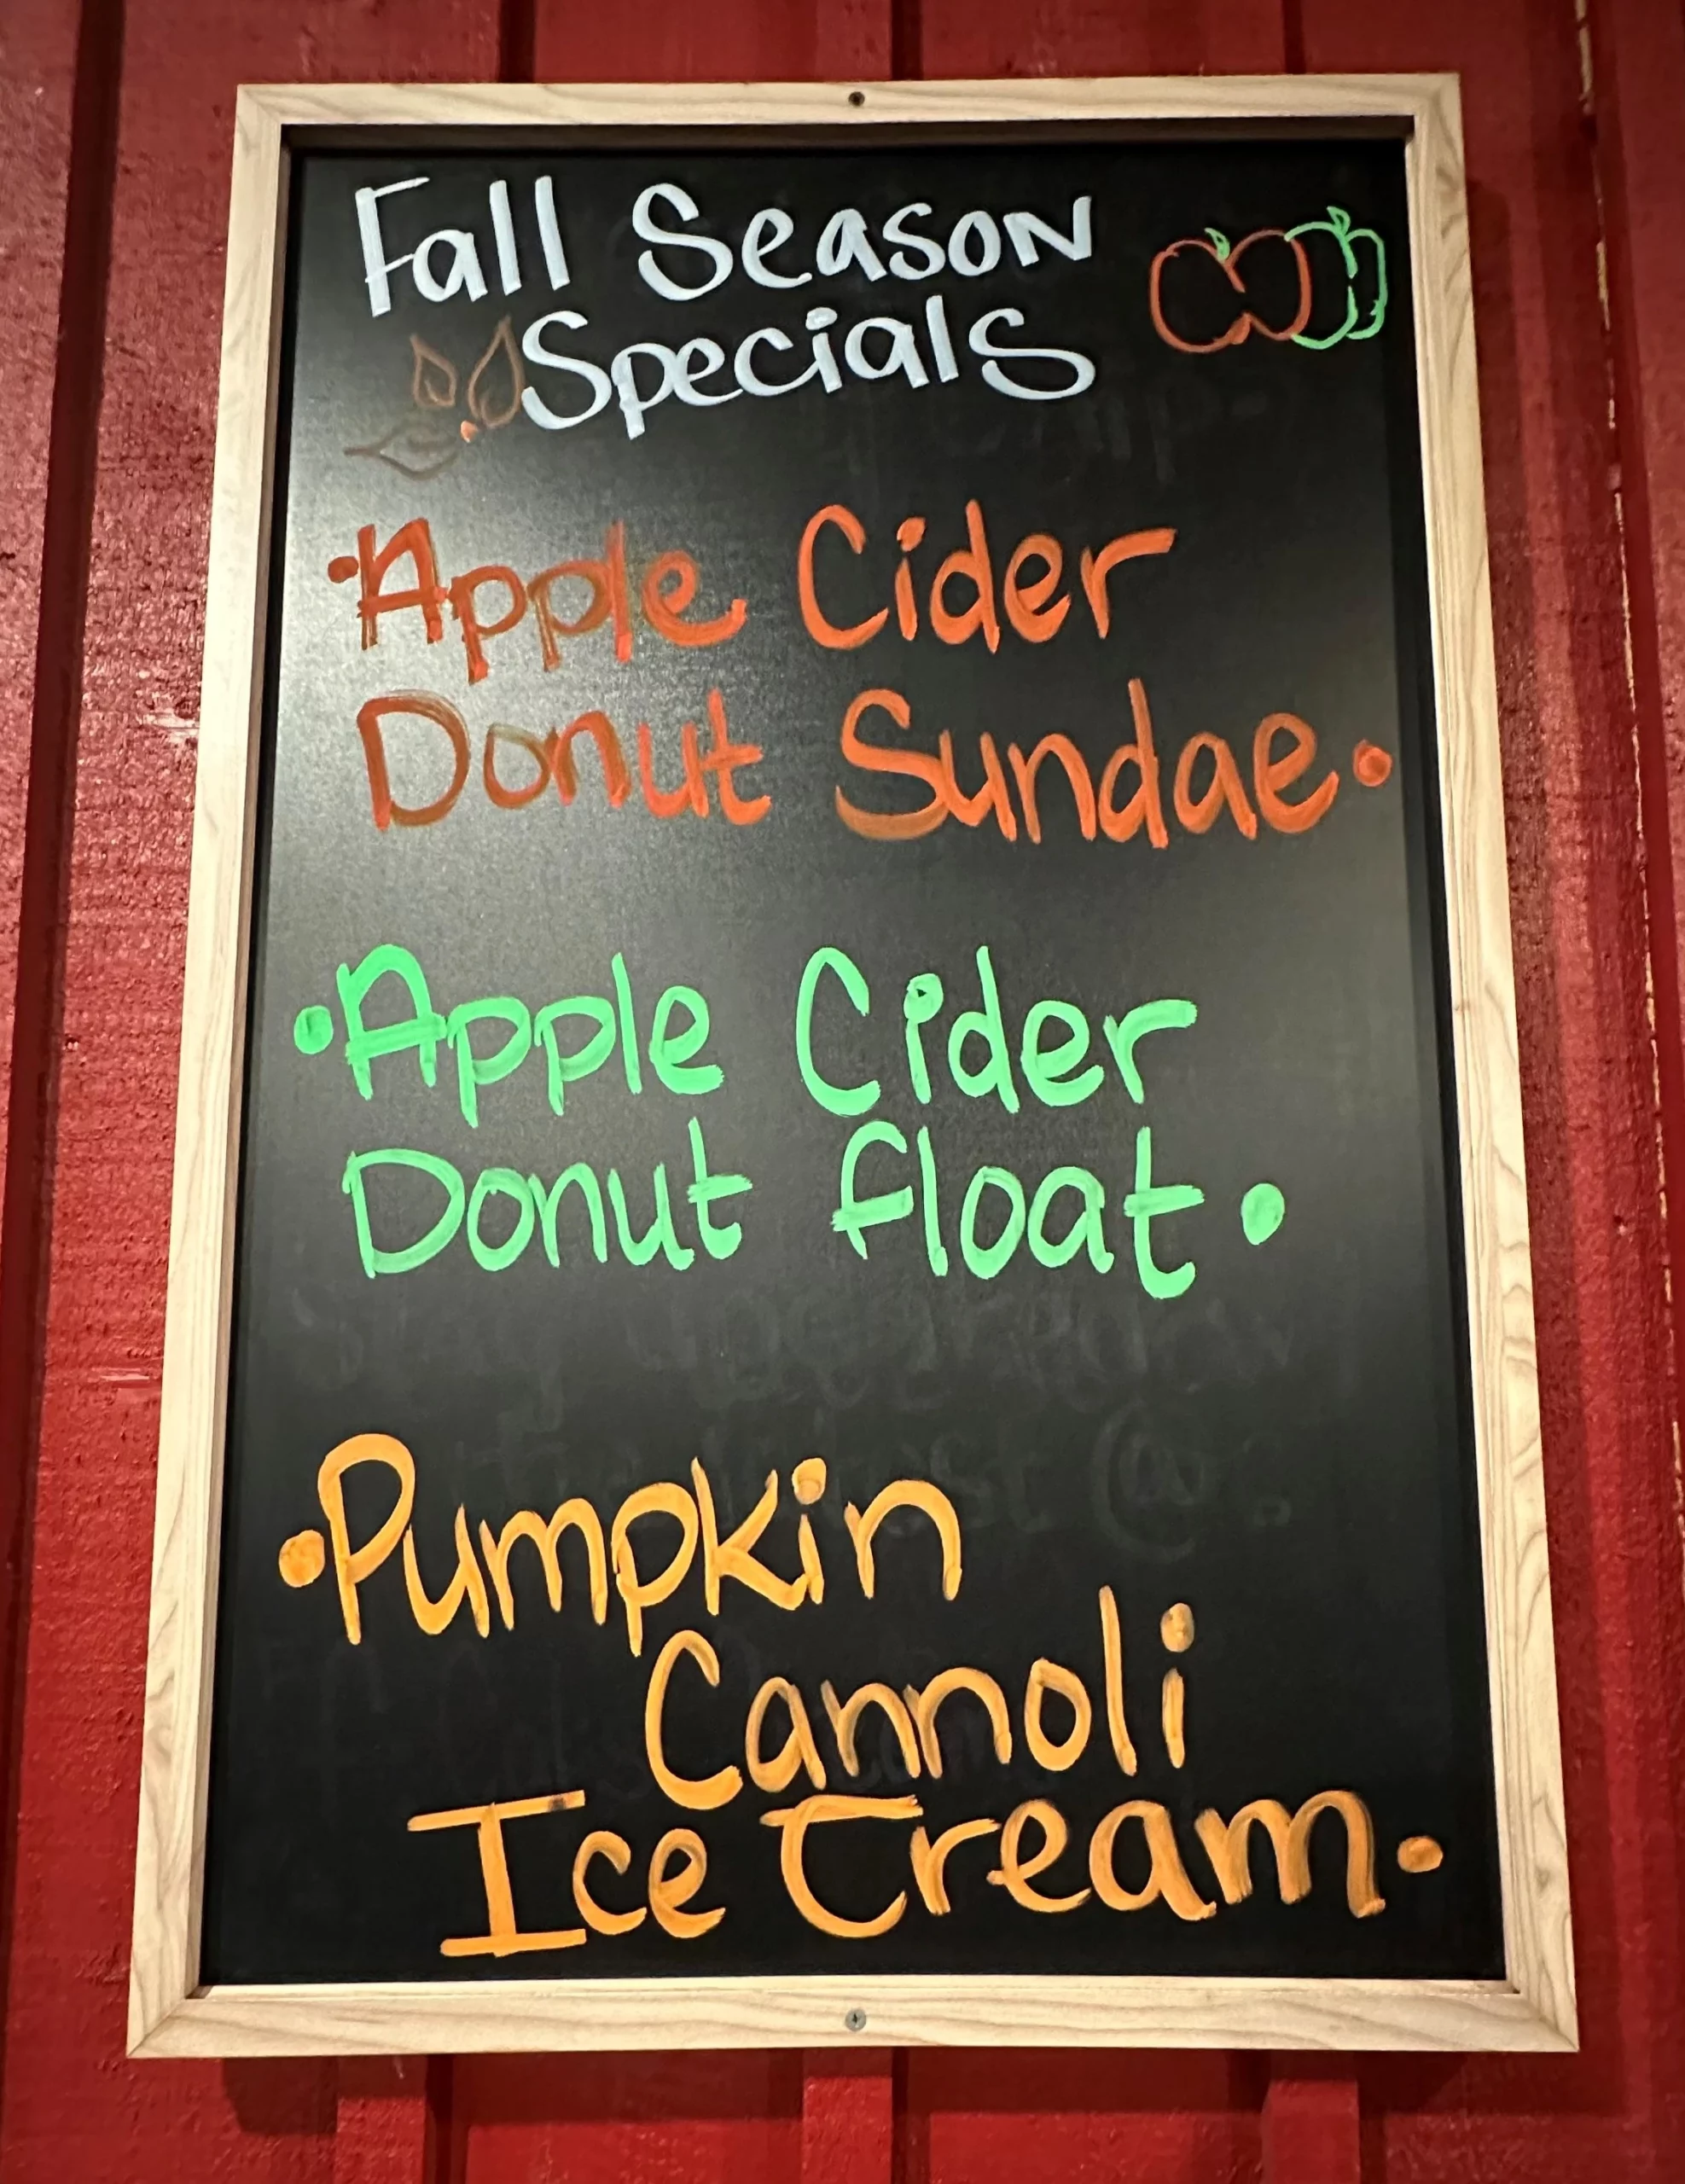 Fall Season
Specials
•Apple Cider
Donut Sundae•
•Apple Cider
Donut float•
•Pumpkin
Cannoli
Ice Cream•